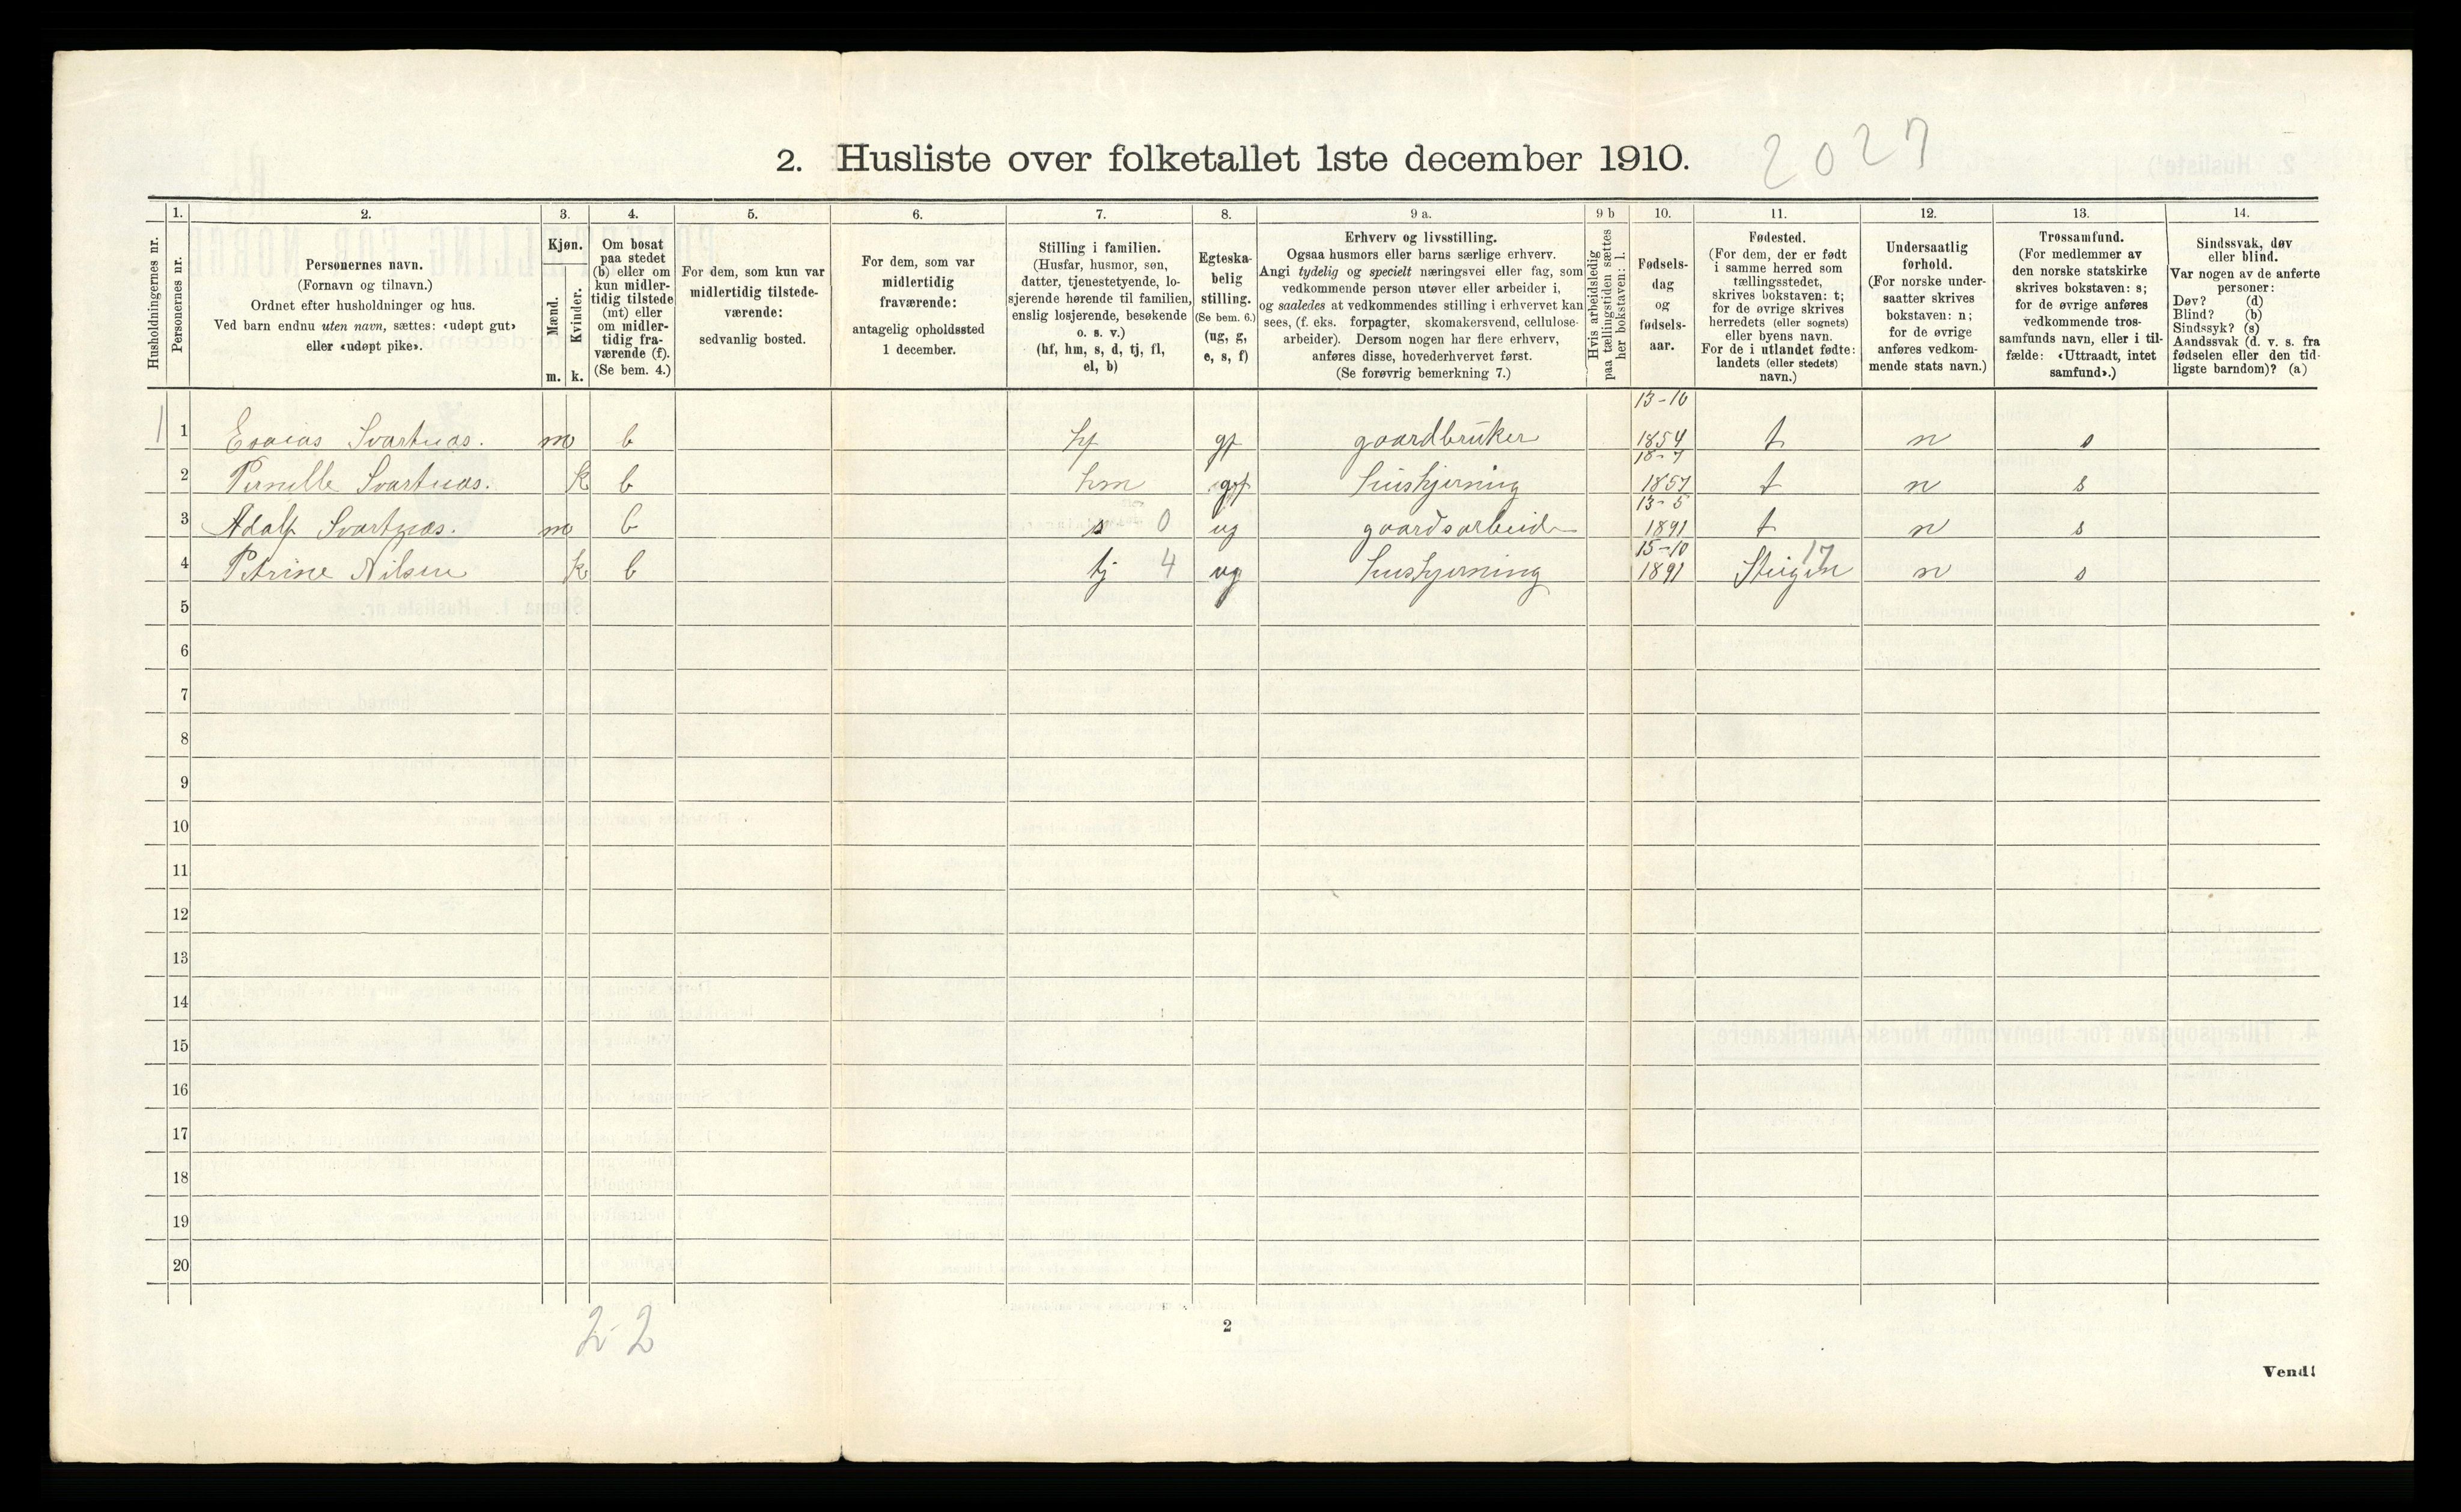 2. Husliste over folketallet 1ste december 1910.
2027
Husholdningernes nr.
1.
Personernes nr.
2.
Personernes navn.
(Fornavn og tilnavn.)
Ordnet efter husholdninger og hus.
Ved barn endnu uten navn, sættes: «udøpt gut»
eller «udøpt pike».
3.
Kjøn.
Mænd.
Kvinder.
m. k.
4.
Om bosat
paa stedet
(b) eller om
kun midler-
tidig tilstede
(mt) eller
om midler-
tidig fra-
værende (f).
(Se bem. 4.)
5.
For dem, som kun var
midlertidig tilstede-
værende:
sedvanlig bosted.
6.
For dem, som var
midlertidig
fraværende:
antagelig opholdssted
1 december.
7.
Stilling i familien.
(Husfar, husmor, søn,
datter, tjenestetyende, lo-
sjerende hørende til familien,
enslig losjerende, besøkende
o. s. v.)
(hf, hm, s, d, tj, fl,
el, b)
8.
Egteska-
belig
stilling.
(Se bem. 6.)
(ug, g,
e, s, f)
9 a.
Erhverv og livsstilling.
Ogsaa husmors eller barns særlige erhverv.
Angi tydelig og specielt næringsvei eller fag, som
vedkommende person utøver eller arbeider i,
og saaledes at vedkommendes stilling i erhvervet kan
sees, (f. eks. forpagter, skomakersvend, cellulose-
arbeider). Dersom nogen har flere erhverv,
anføres disse, hovederhvervet først.
(Se forøvrig bemerkning 7.)
9 b
Hvis arbeidsledig
paa tællingstiden sættes
her bokstaven: l.
10.
Fødsels-
dag
og
fødsels-
aar.
11.
Fødested.
(For dem, der er født
i samme herred som
tællingsstedet,
skrives bokstaven: t;
for de øvrige skrives
herredets (eller sognets)
eller byens navn.
For de i utlandet fødte:
landets (eller stedets)
navn.)
12.
Undersaatlig
forhold.
(For norske under-
saatter skrives
bokstaven: n;
for de øvrige
anføres vedkom-
mende stats navn.)
13.
Trossamfund.
(For medlemmer av
den norske statskirke
skrives bokstaven: s;
for de øvrige anføres
vedkommende tros-
samfunds navn, eller i til-
fælde: «Uttraadt, intet
samfund».)
14.
Sindssvak, døv
eller blind.
Var nogen av de anførte
personer:
Døv? (d)
Blind? (b)
Sindssyk? (s)
Aandssvak (d. v. s. fra
fødselen eller den tid-
ligste barndom)? (a)
1 1 Esaias Svartnæs. m b hf gf gaardbruker 13-10 1854 t n s
2 Pernille Svartnæs. k b hm gf hushjerning 18-7 1857 t n s
3 Adolf Svartnæs. m b s 0 ug gaardsarbeid 13-5 1891 t n s
4 Petrine Nilsen k b tj 4 ug hushjerning 15-10 1891 Steigen 17 n s
5
6
7
8
9
10
11
12
13
14
15
16
17
18
19
20
2-2
2
Vend!